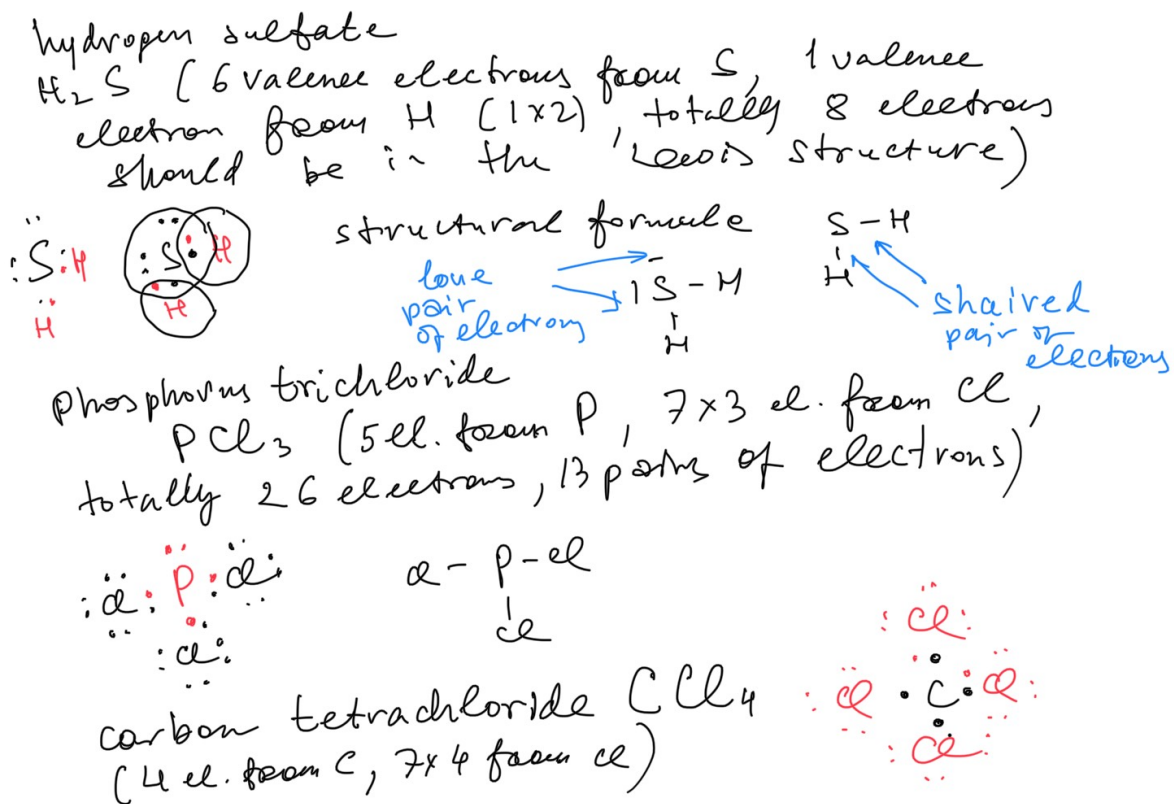 hydrogen sulfate
H₂S (6 valence electrons from S, 1 valence
electron from H (1×2), totally 8 electrons
should be in the Lewis structure)
:S:H
H
S H
H
structural formule
S-H
H
lone
pair
of electrons
|S-H
H
shaired
pair of
electrons
phosphorus trichloride
PCl₃ (5 el. from P, 7×3 el. from Cl,
totally 26 electrons, 13 pairs of electrons)
:Cl:P:Cl:
:Cl:
Cl-P-Cl
Cl
carbon tetrachloride CCl₄
(4 el. from C, 7×4 from Cl)
:Cl:
:Cl:C:Cl:
:Cl: